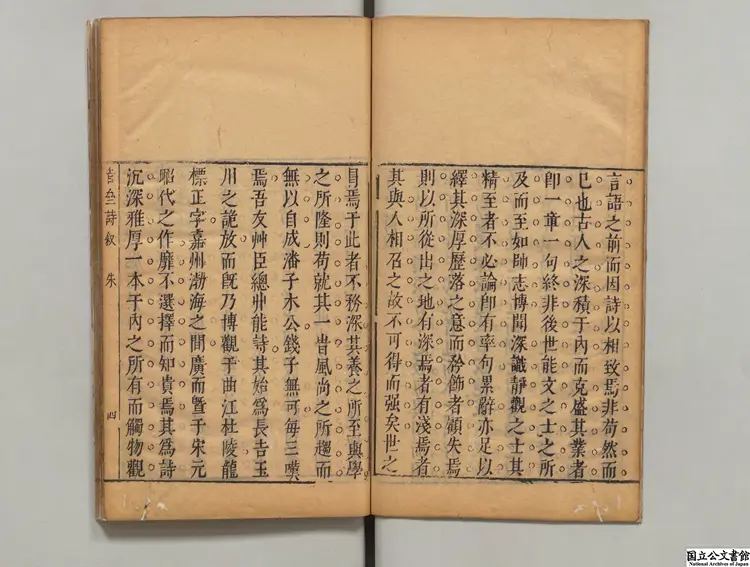 言語之前而因詩以相致焉非苟然而
已也古人之深積于內而克盛其業者
卽一章一句終非後世能文之士之所
及而至如師志博聞深識靜觀之士其
精至者不必論卽有率句累辭亦足以
繹其深厚歷落之意而矜飾者顧失焉
則以所從出之地有深焉者有淺焉者
其與人相召之故不可得而强矣世之
焉于此者不務深其養之所至與學
之所隆則苟就其一昔風尚之所趨而
無以自成潘子木公錢子無可每三嘆
焉吾友艸臣總丱能詩其始爲長吉玉
川之詭放而旣乃博觀于曲江杜陵龍
標正字嘉州渤海之間廣而曁于宋元
昭代之作靡不選擇而知貴焉其爲詩
沉深雅厚一本于內之所有而觸物觀
詩叙 朱 四
国立公文書館
National Archives of Japan